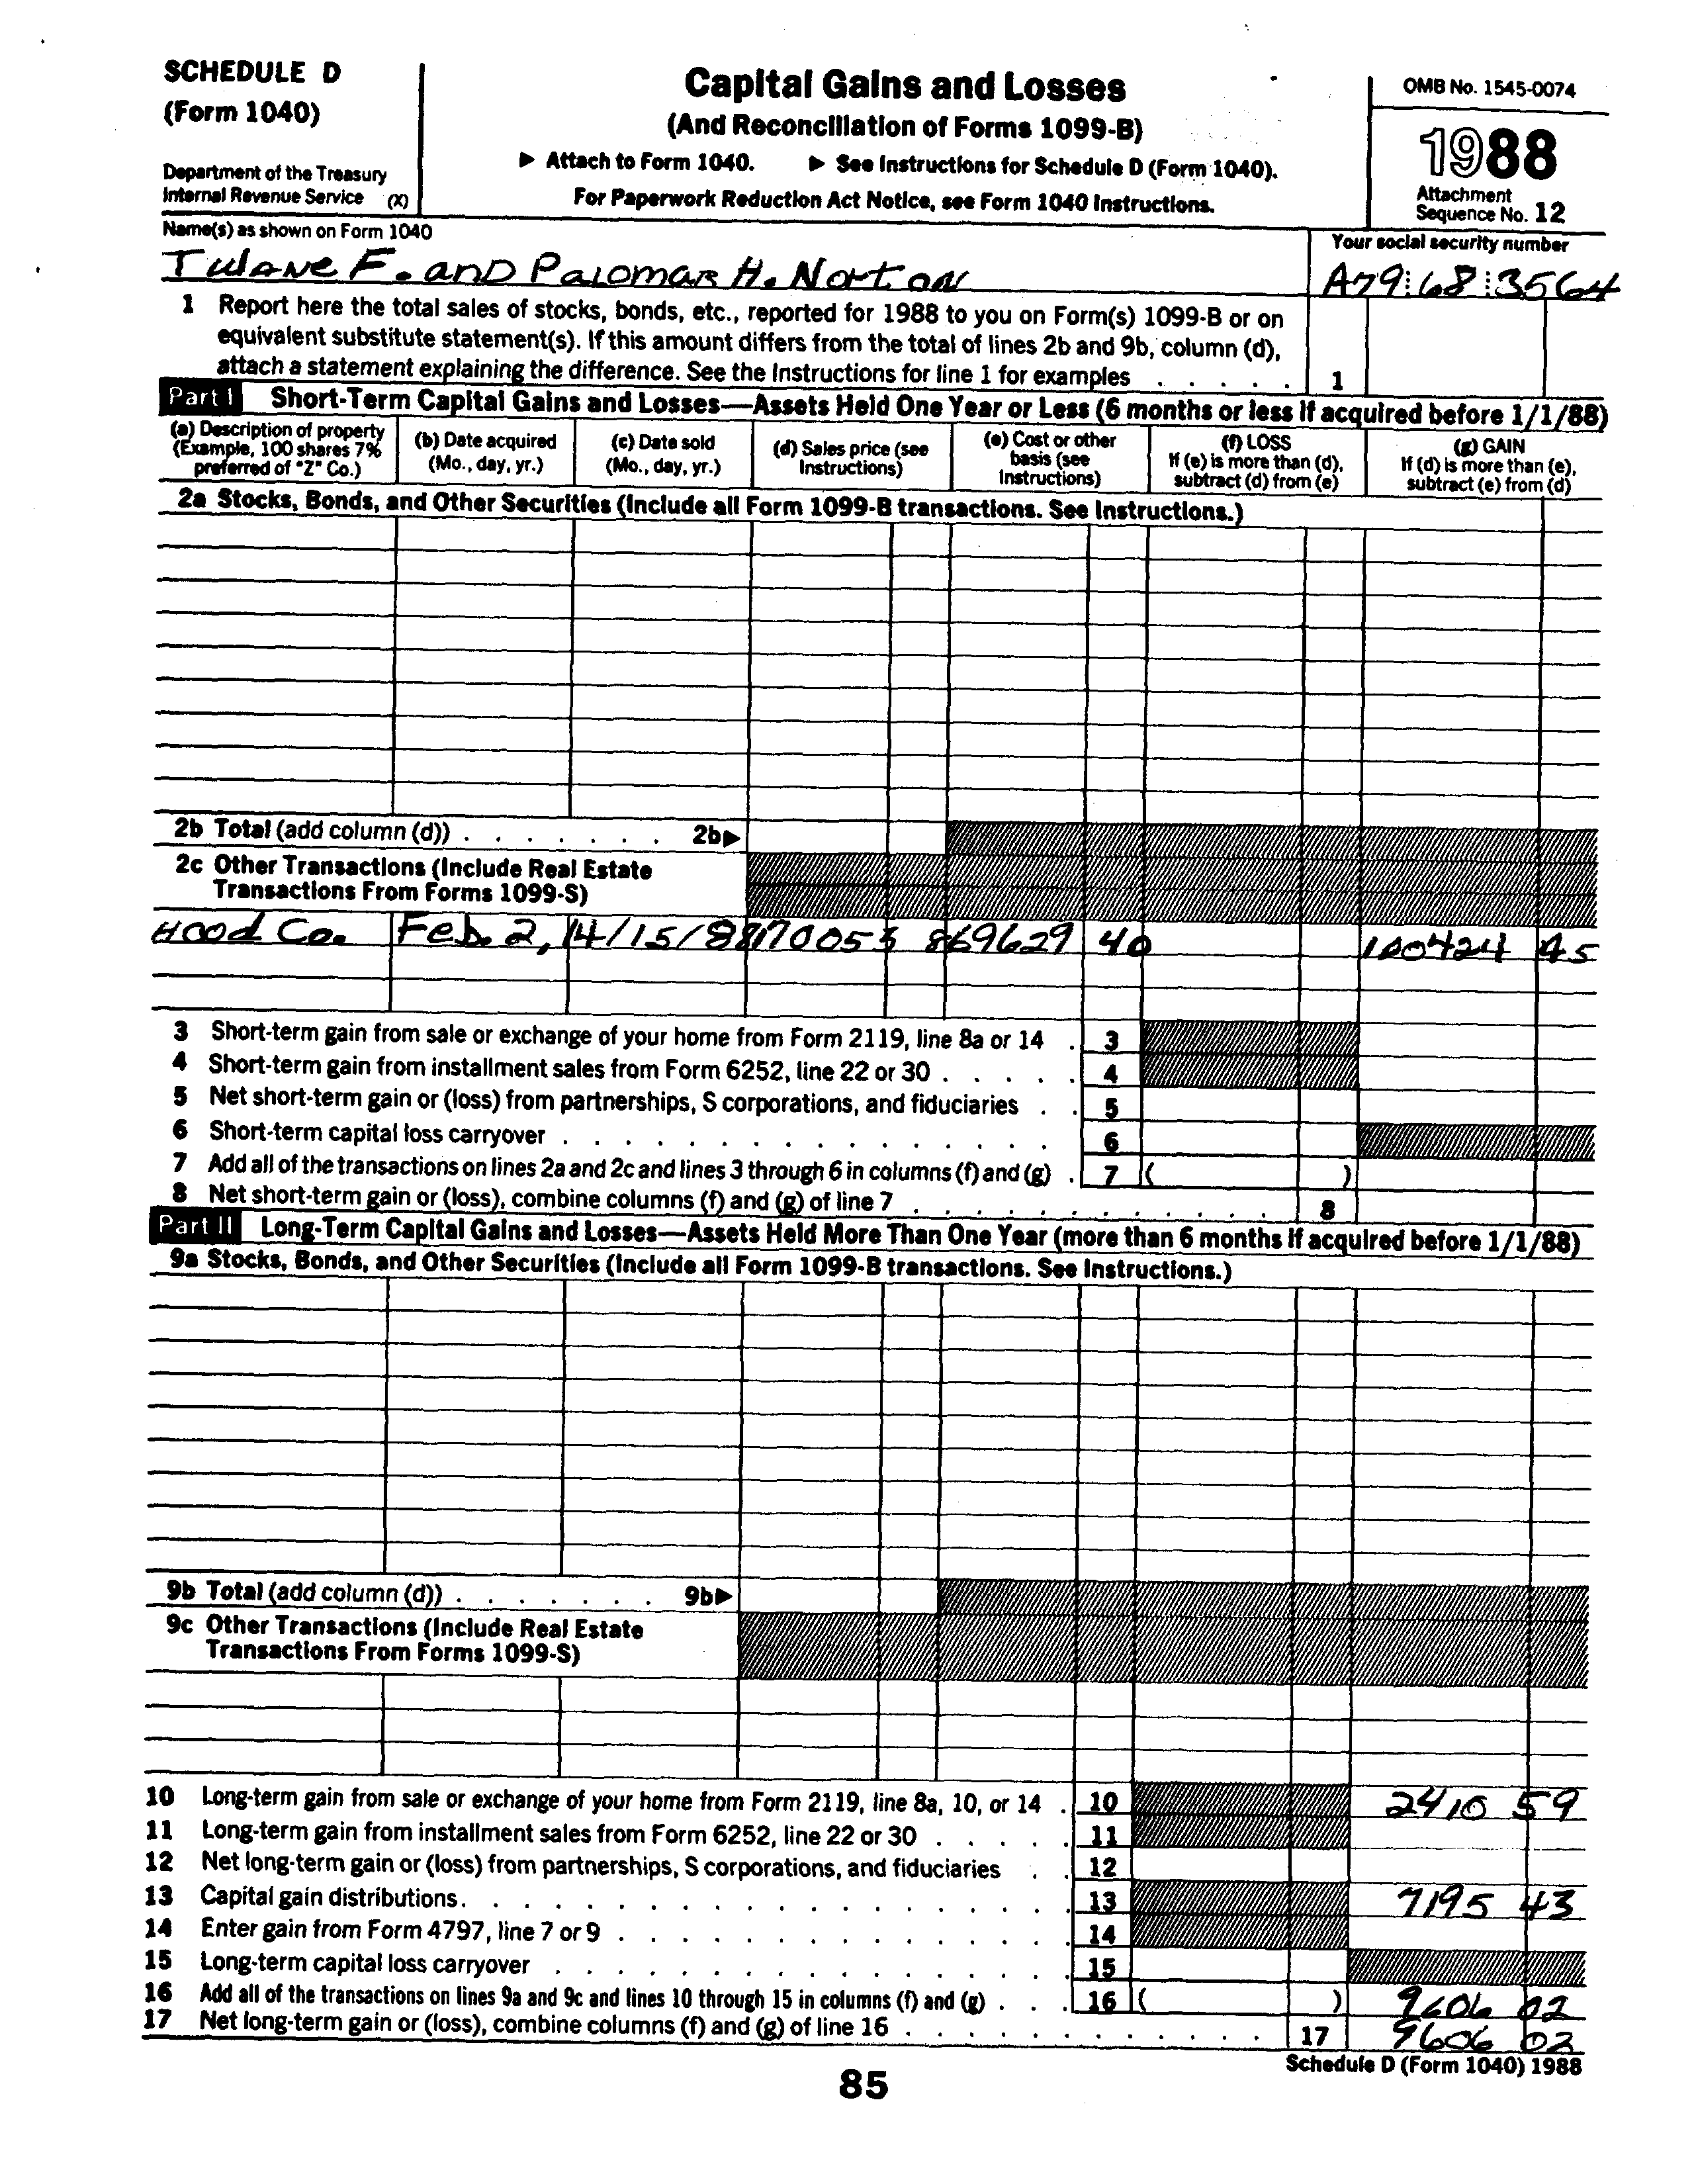 SCHEDULE D
(Form 1040)
Department of the Treasury
Internal Revenue Service (X)
Capital Gains and Losses
(And Reconciliation of Forms 1099-B)
▶ Attach to Form 1040. ▶ See Instructions for Schedule D (Form 1040).
For Paperwork Reduction Act Notice, see Form 1040 Instructions.
OMB No. 1545-0074
1988
Attachment
Sequence No. 12
Name(s) as shown on Form 1040
Your social security number
Tulane F. and Palomar H. Norton
A79 68 3564
1 Report here the total sales of stocks, bonds, etc., reported for 1988 to you on Form(s) 1099-B or on
equivalent substitute statement(s). If this amount differs from the total of lines 2b and 9b, column (d),
attach a statement explaining the difference. See the Instructions for line 1 for examples . . . . . 1
Part I Short-Term Capital Gains and Losses—Assets Held One Year or Less (6 months or less if acquired before 1/1/88)
(a) Description of property
(Example, 100 shares 7%
preferred of "Z" Co.)
(b) Date acquired
(Mo., day, yr.)
(c) Date sold
(Mo., day, yr.)
(d) Sales price (see
Instructions)
(e) Cost or other
basis (see
Instructions)
(f) LOSS
If (e) is more than (d),
subtract (d) from (e)
(g) GAIN
If (d) is more than (e),
subtract (e) from (d)
2a Stocks, Bonds, and Other Securities (Include all Form 1099-B transactions. See Instructions.)
2b Total (add column (d)) . . . . . . . 2b▶
2c Other Transactions (Include Real Estate
Transactions From Forms 1099-S)
Hood Co. Feb. 2, 4/15/88 69629 40 45
3 Short-term gain from sale or exchange of your home from Form 2119, line 8a or 14 . 3
4 Short-term gain from installment sales from Form 6252, line 22 or 30 . . . . . 4
5 Net short-term gain or (loss) from partnerships, S corporations, and fiduciaries . . 5
6 Short-term capital loss carryover . . . . . . . . . . . . . . . . 6
7 Add all of the transactions on lines 2a and 2c and lines 3 through 6 in columns (f) and (g) . 7 ( )
8 Net short-term gain or (loss), combine columns (f) and (g) of line 7 . . . . . . . . . . . . 8
Part II Long-Term Capital Gains and Losses—Assets Held More Than One Year (more than 6 months if acquired before 1/1/88)
9a Stocks, Bonds, and Other Securities (Include all Form 1099-B transactions. See Instructions.)
9b Total (add column (d)) . . . . . . . 9b▶
9c Other Transactions (Include Real Estate
Transactions From Forms 1099-S)
10 Long-term gain from sale or exchange of your home from Form 2119, line 8a, 10, or 14 . 10 2410 59
11 Long-term gain from installment sales from Form 6252, line 22 or 30 . . . . . 11
12 Net long-term gain or (loss) from partnerships, S corporations, and fiduciaries . . 12
13 Capital gain distributions . . . . . . . . . . . . . . . . . . . 13 7195 43
14 Enter gain from Form 4797, line 7 or 9 . . . . . . . . . . . . . . 14
15 Long-term capital loss carryover . . . . . . . . . . . . . . . . . 15
16 Add all of the transactions on lines 9a and 9c and lines 10 through 15 in columns (f) and (g) . . . 16 ( ) 9606 02
17 Net long-term gain or (loss), combine columns (f) and (g) of line 16 . . . . . . . . . . . . 17 9606 02
Schedule D (Form 1040) 1988
85